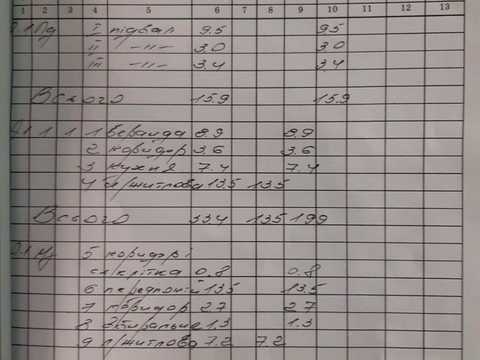 1 2 3 4 5 6 7 8 9 10 11 12 13
Пд I підвал 9.5 9.5
II -//- 3.0 3.0
III -//- 3.4 3.4
Всього 15.9 15.9
1 1 1 веранда 8.9 8.9
2 коридор 3.6 3.6
3 кухня 7.4 7.4
4 житлова 13.5 13.5
Всього 33.4 13.5 19.9
5 коридор і
сх.клітка 0.8 0.8
6 13.5 13.5
7 коридор 2.7 2.7
8 1.3 1.3
9 житлова 7.2 7.2